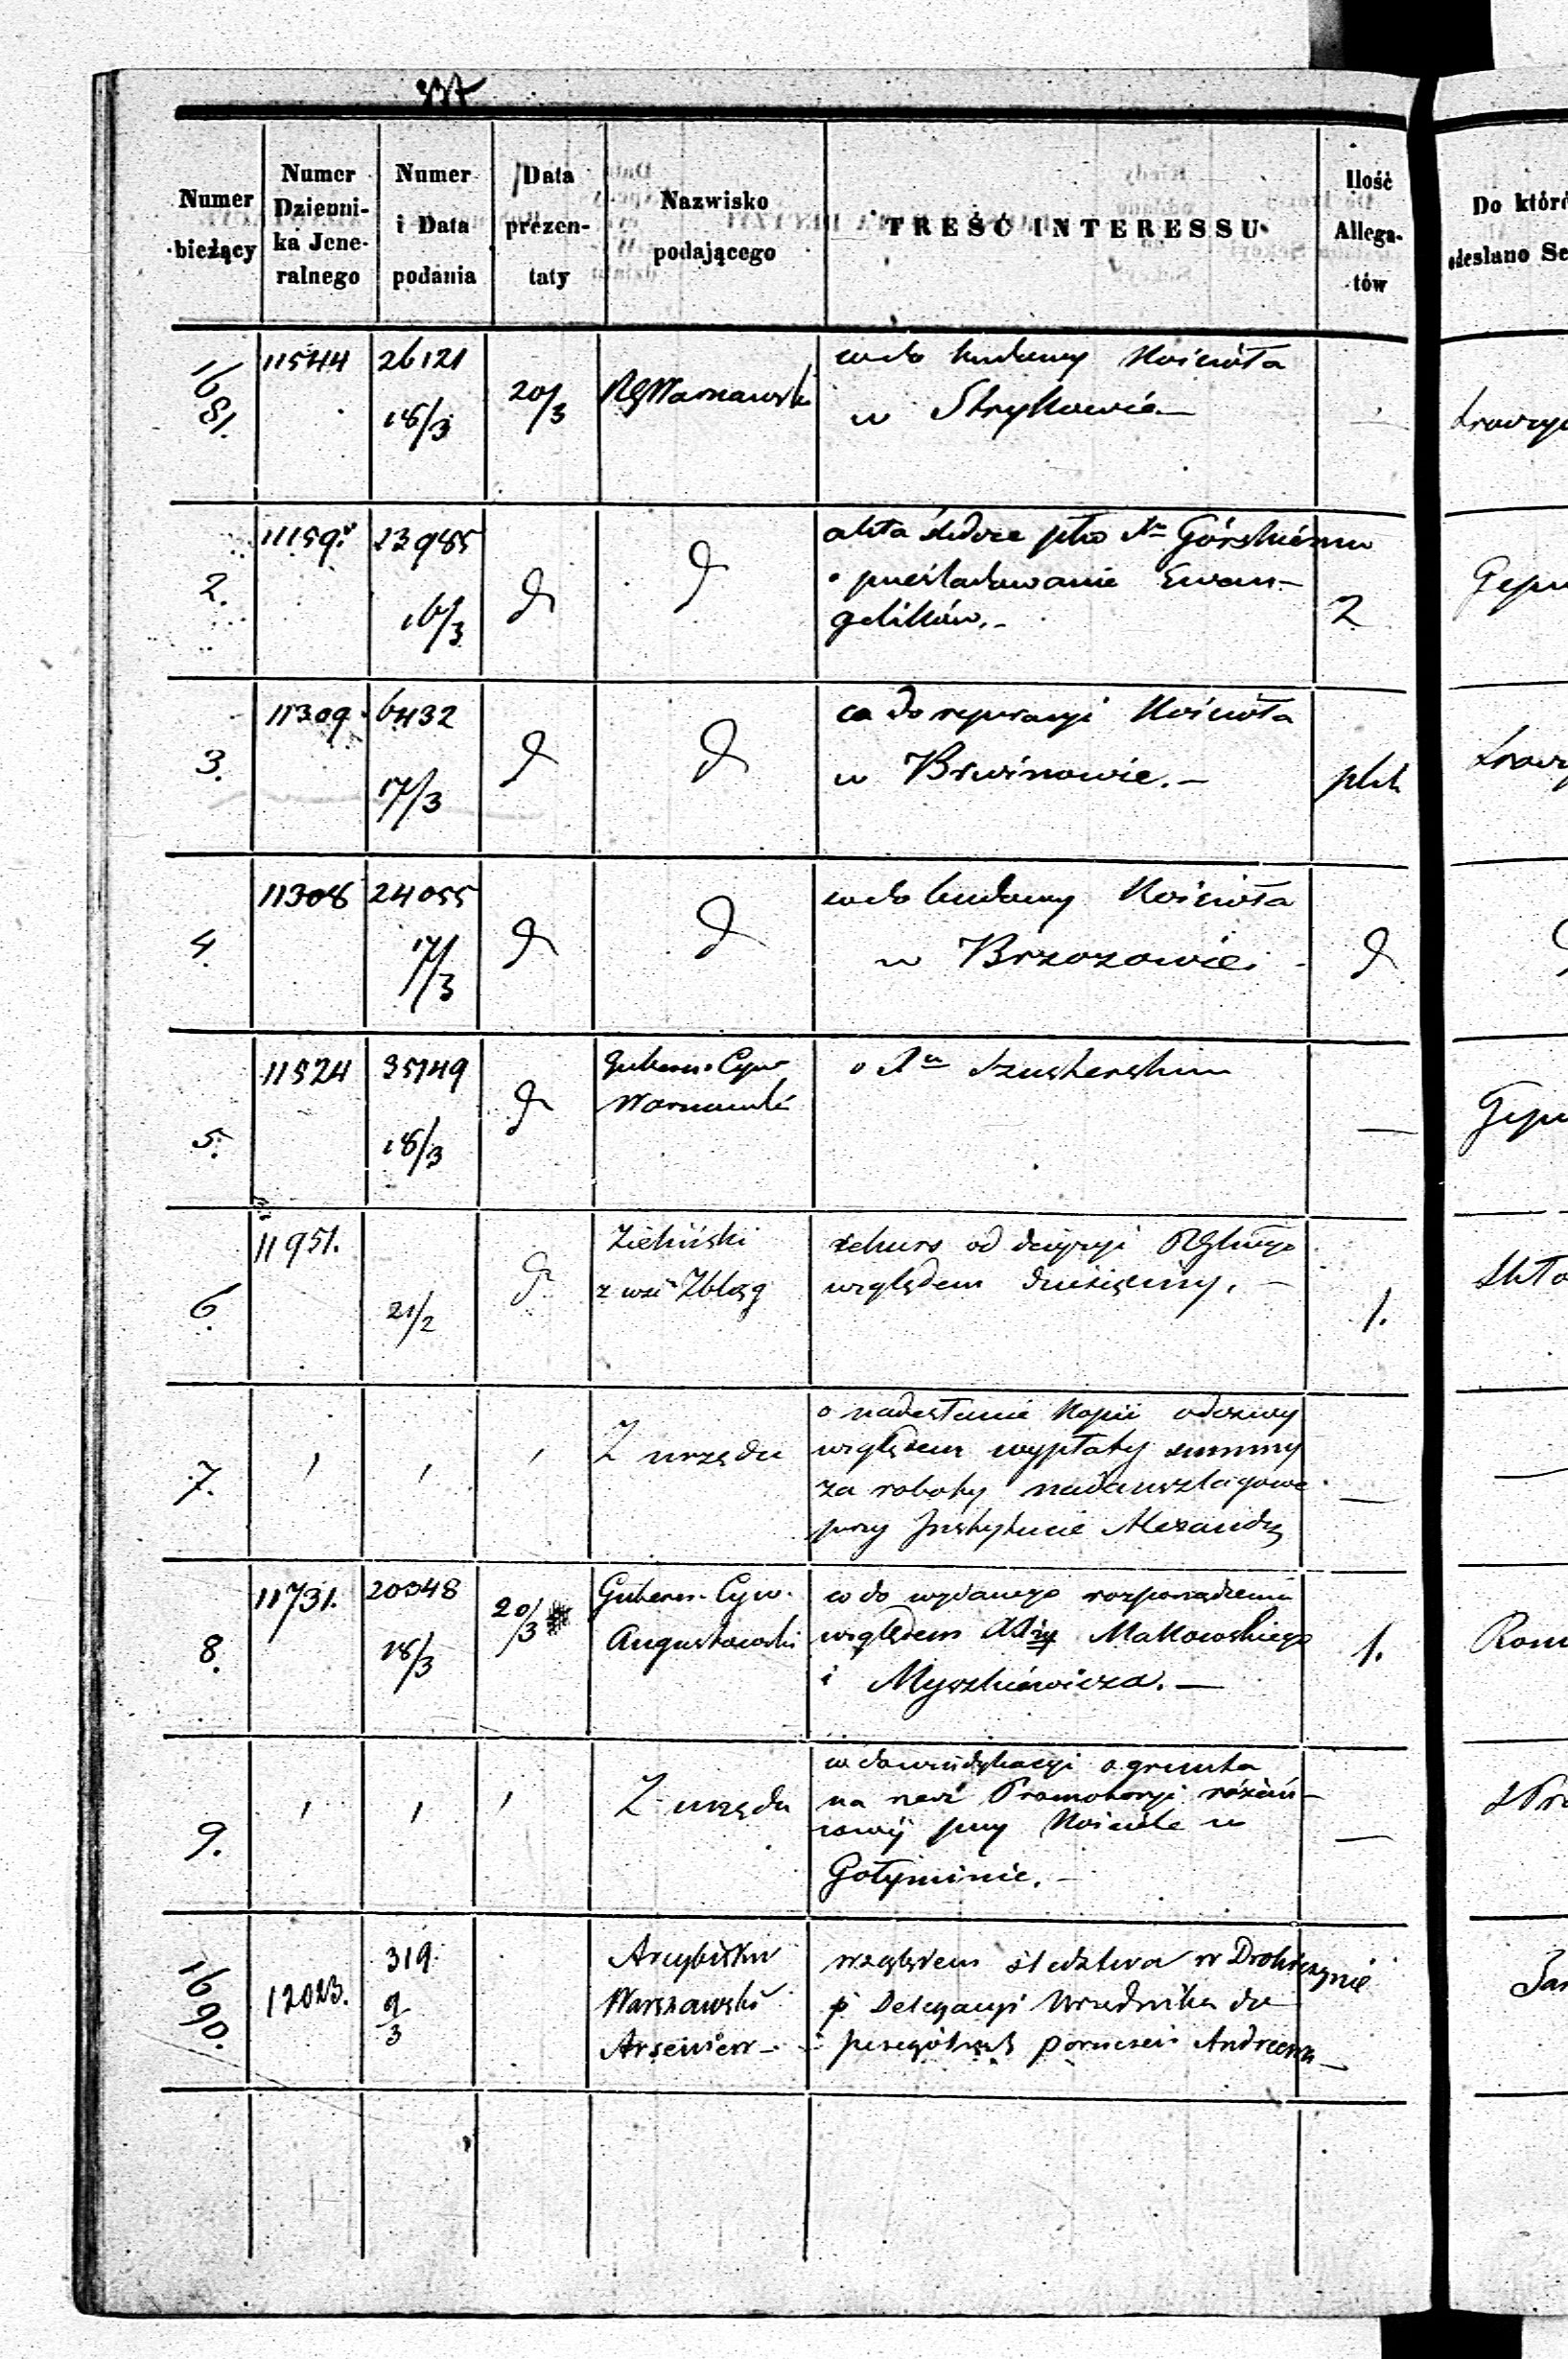 337
Numer bieżący
Numer Dziennika Jeneralnego
Numer i Data podania
Data prezentaty
Nazwisko podającego
TREŚĆ INTERESSU
Ilość Allegatów
Do któré
odesłano Se
1681. 11544 26121 18/3 20/3 RGWarszawski
co do budowy Kościoła
w Strykowie —
2. 11159. 23985 16/3 d d
akta śledcze pko Górskiému
o prześladowanie Ewan-
gelików. - 2
3. 11309 6432 17/3 d d
co do reperacyi Kościoła
w Brwinowie. — plik
4. 11308 24055 17/3 d d
co do budowy Kościoła
w Brzozowie. d
5. 11524 35149 18/3 d
Gubern. Cyw
Warszawski
o Xu Szusterskim —
6. 11951. 21/2 d
Zieliński
z wsi Zbląg
rekurs od decyzyi RGlnego
względem dziesięciny. — 1.
7. Z urzędu
o nadesłanie kopii odezwy
względem wypłaty summy
za roboty nadanszlagowe
przy Instytucie Alexandr —
8. 11731. 20348 18/3 20/3
Gubern. Cyw.
Augustowski
co do wydanego rozporządzenia
względem Makowskiego
i Myszkiéwicza. — 1.
9. Z urzędu
w dowindykacyi o grunta
na rzecz Promotoryi różań-
cowéj przy Kościele w
Gołyminie. —
1690. 12023. 319 9/3
Arcybiskup
Warszawski
Arseniew —
względem śledztwa w Drohiczynie
p Delegacyi Urzędnika do
szczególnych poruczeń Andreewa —